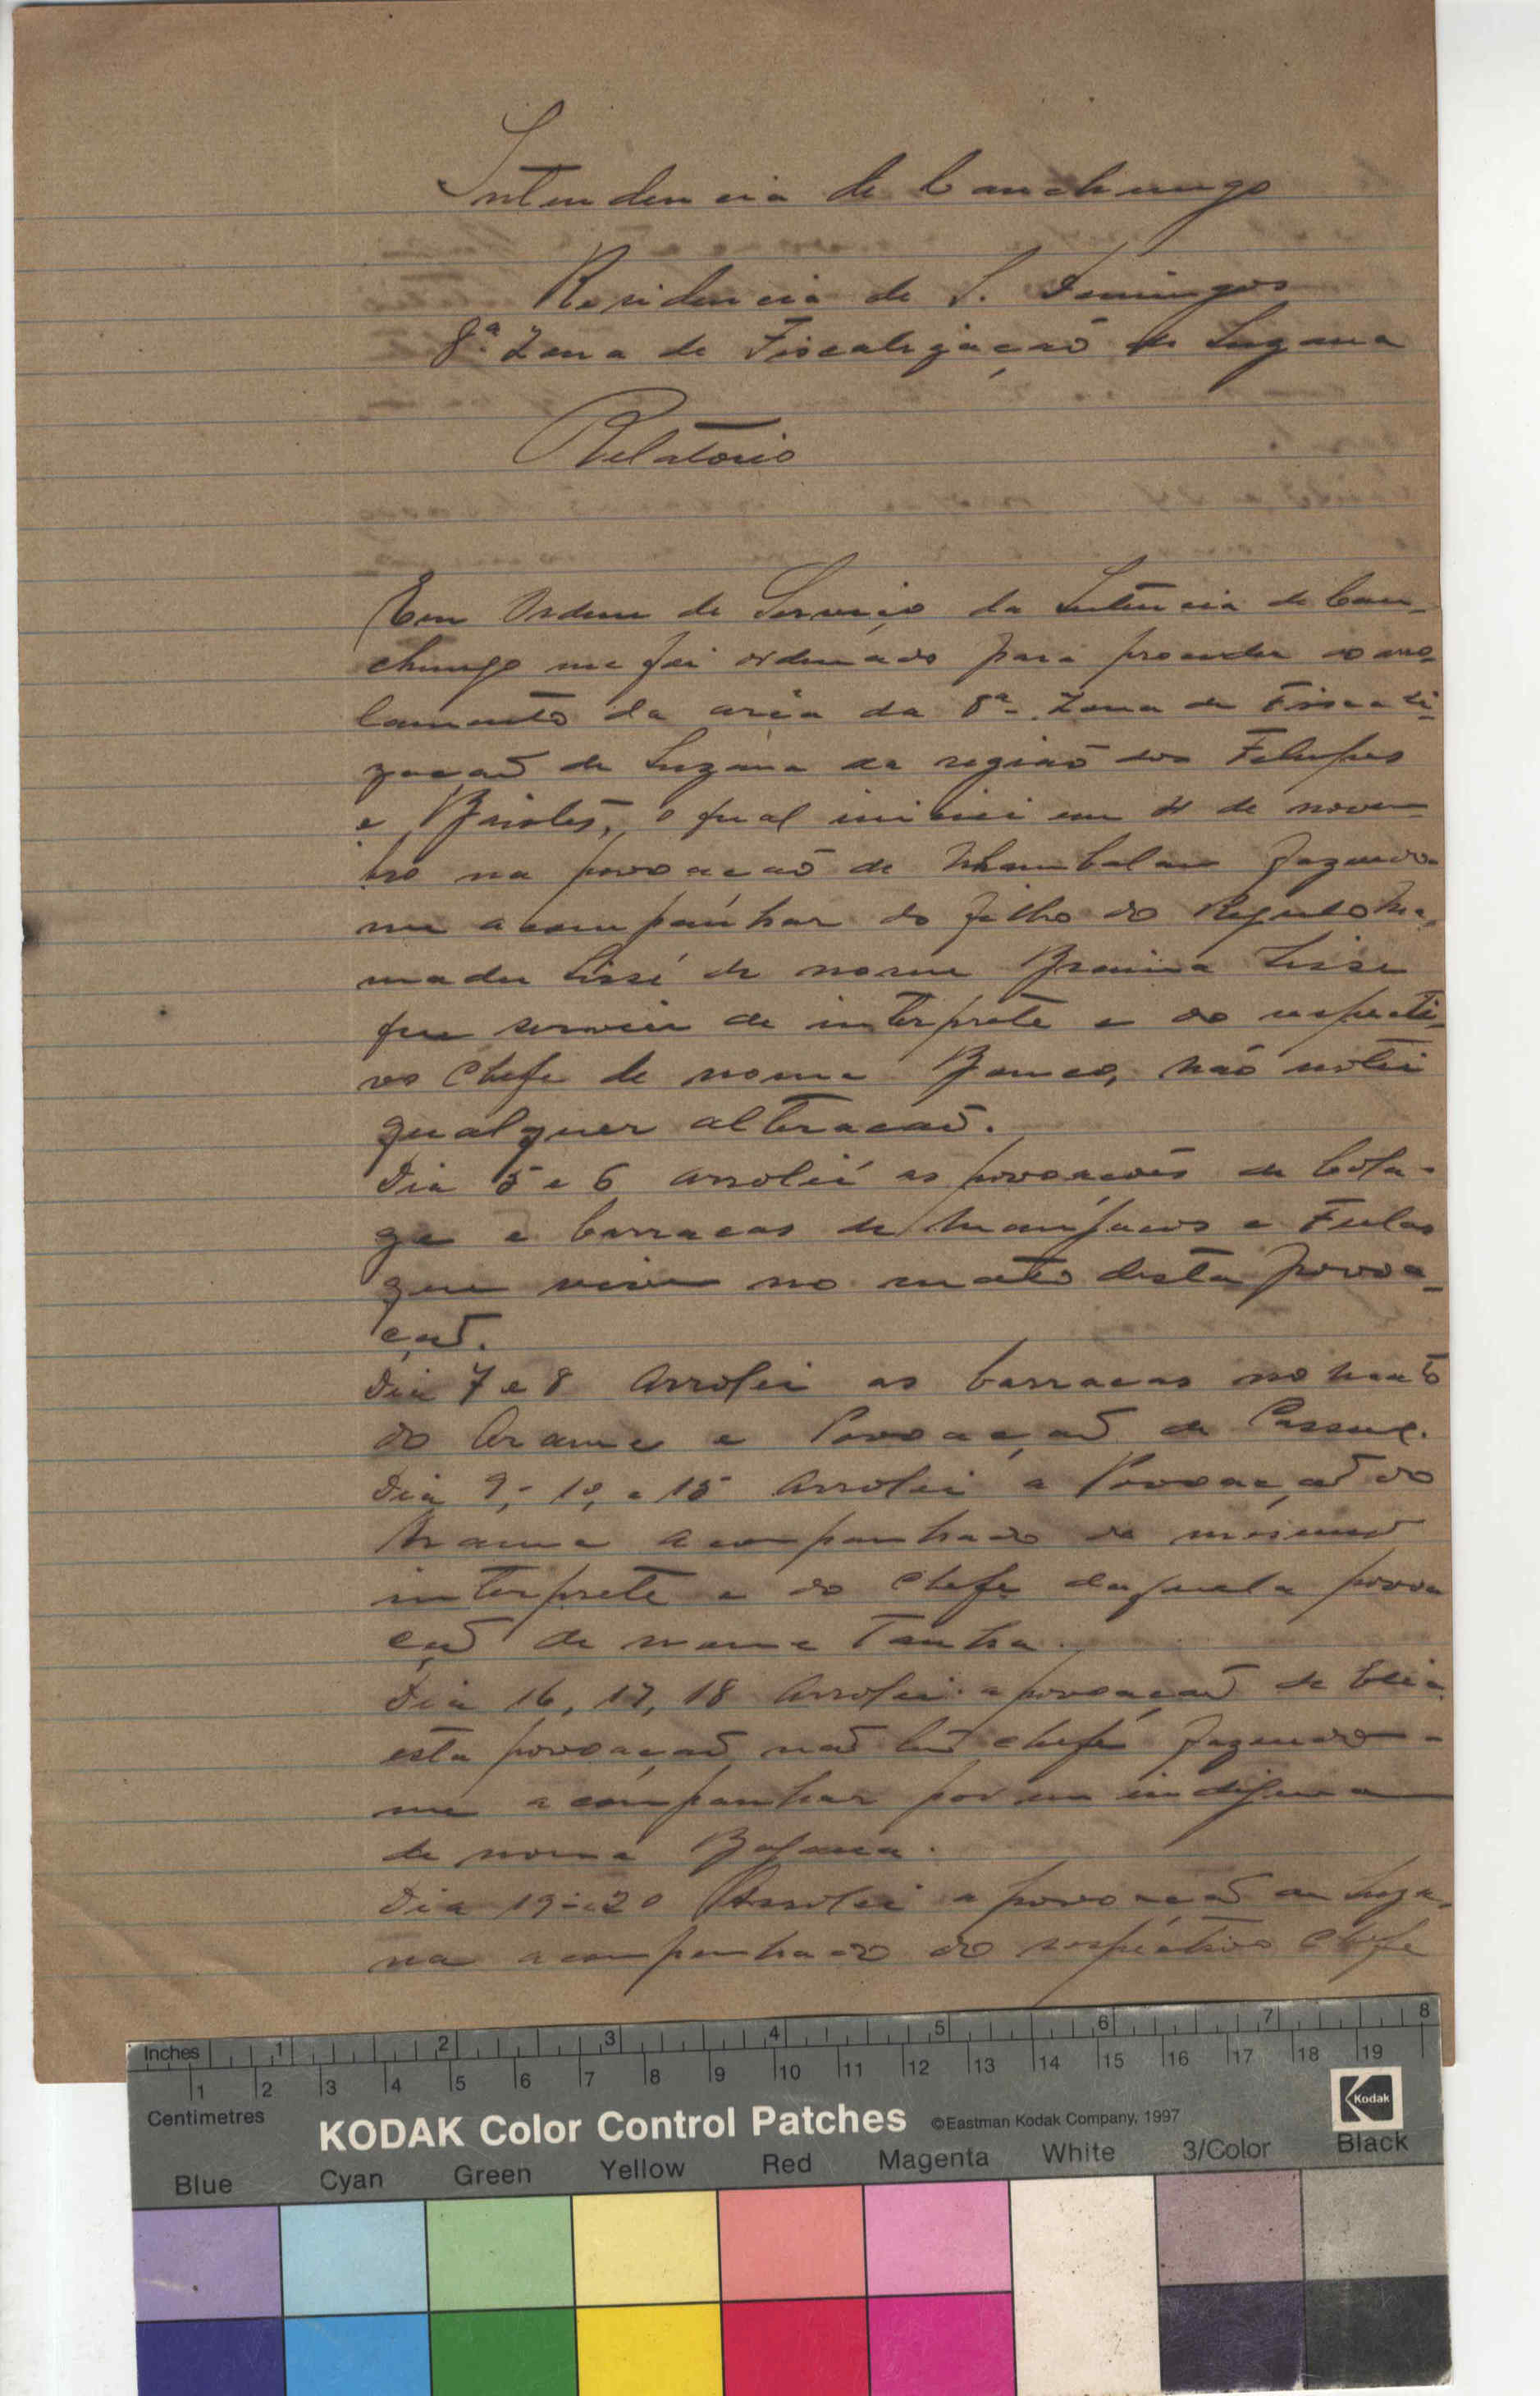 Intendencia de Canchungo
Residencia de S. Domingos
8.ª Zona de Fiscalização de Suzana
Relatório
Em Ordem de Serviço da Intencia de Can-
chungo me foi ordenado para proceder ao arro-
lamento da aria da 8ª Zona de Fiscali-
zação de Suzana da região dos Felupes
e Baiotes, o qual iniciei em 4 de novem-
bro na povoação de fazendo-
me acompanhar do filho do Regulo Ma-
madu Sissé de nome Sisse
que serviu de interprete e do respecti-
vo chefe de nome não notei
qualquer alteração.
Dia 5 e 6 arrolei as povoações de
e barracas de Manjacos e Fulas
que vive no mato desta povoa-
ção.
Dia 7 e 8 Arrolei as barracas no mato
do Arame e Povoação de
Dia 9, 10, e 15 Arrolei a Povoação do
Arame acompanhado do mesmo
interprete e do chefe daquela povoa
ção de nome
Dia 16, 17, 18 Arrolei a povoação de
esta povoação não tem chefe fazendo-
me acompanhar por um indigena
de nome
Dia 19 e 20 Arrolei a povoação de Suza-
na acompanhado do respectivo chefe
Inches 1 2 3 4 5 6 7 8
1 2 3 4 5 6 7 8 9 10 11 12 13 14 15 16 17 18 19
Centimetres
KODAK Color Control Patches ©Eastman Kodak Company, 1997
Kodak
Blue Cyan Green Yellow Red Magenta White 3/Color Black